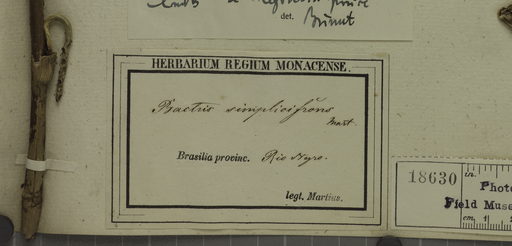 det. Brunut
HERBARIUM REGIUM MONACENSE.
Bactris simplicifrons
Mart.
Brasilia provinc. Rio Negro.
legt. Martius.
18630
cm.
Photo
Field Mus
cm. 1 2